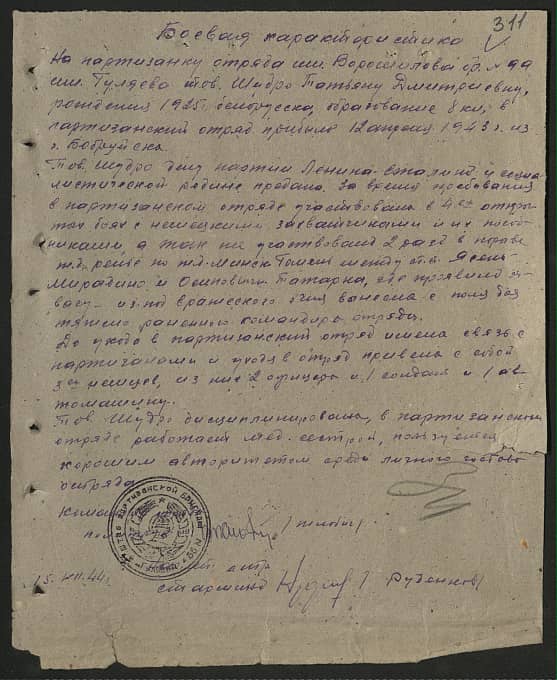 311
Боевая характеристика
На партизанку отряда им. Ворошилова бр. № 99
им. Гуляева тов. Шидро Татьяну Дмитриевну,
рождения 1925г. белорусска, образование 8 кл; в
партизанский отряд прибыла 12 апреля 1943 г. из
г. Бобруйска.
Тов. Шидро делу партии Ленина-Сталина и социа-
листической родине предана. За время пребывания
в партизанском отряде участвовала в 4ех откры-
тых боях с немецкими захватчиками и их пособ-
никами, а так же участвовала 2 раза в
ж.д. рельс на ж.д. Минск Гомель между ст.ст. Ясень
Мирадино и Осиповичи Татарка, где проявила
из-под вражеского огня вынесла с поля боя
тяжело раненого командира отряда.
До ухода в партизанский отряд имела связь с
партизанами и уходя в отряд привела с собой
3ех немцев, из них 2 офицера и 1 солдат и 1 ав-
томашину.
Тов. Шидро дисциплинирована, в партизанском
отряде работает мед. сестрой, пользуется
хорошим авторитетом среди личного состава
отряда.
Коман
15. VIII. 44г.
старшина / Руденков /